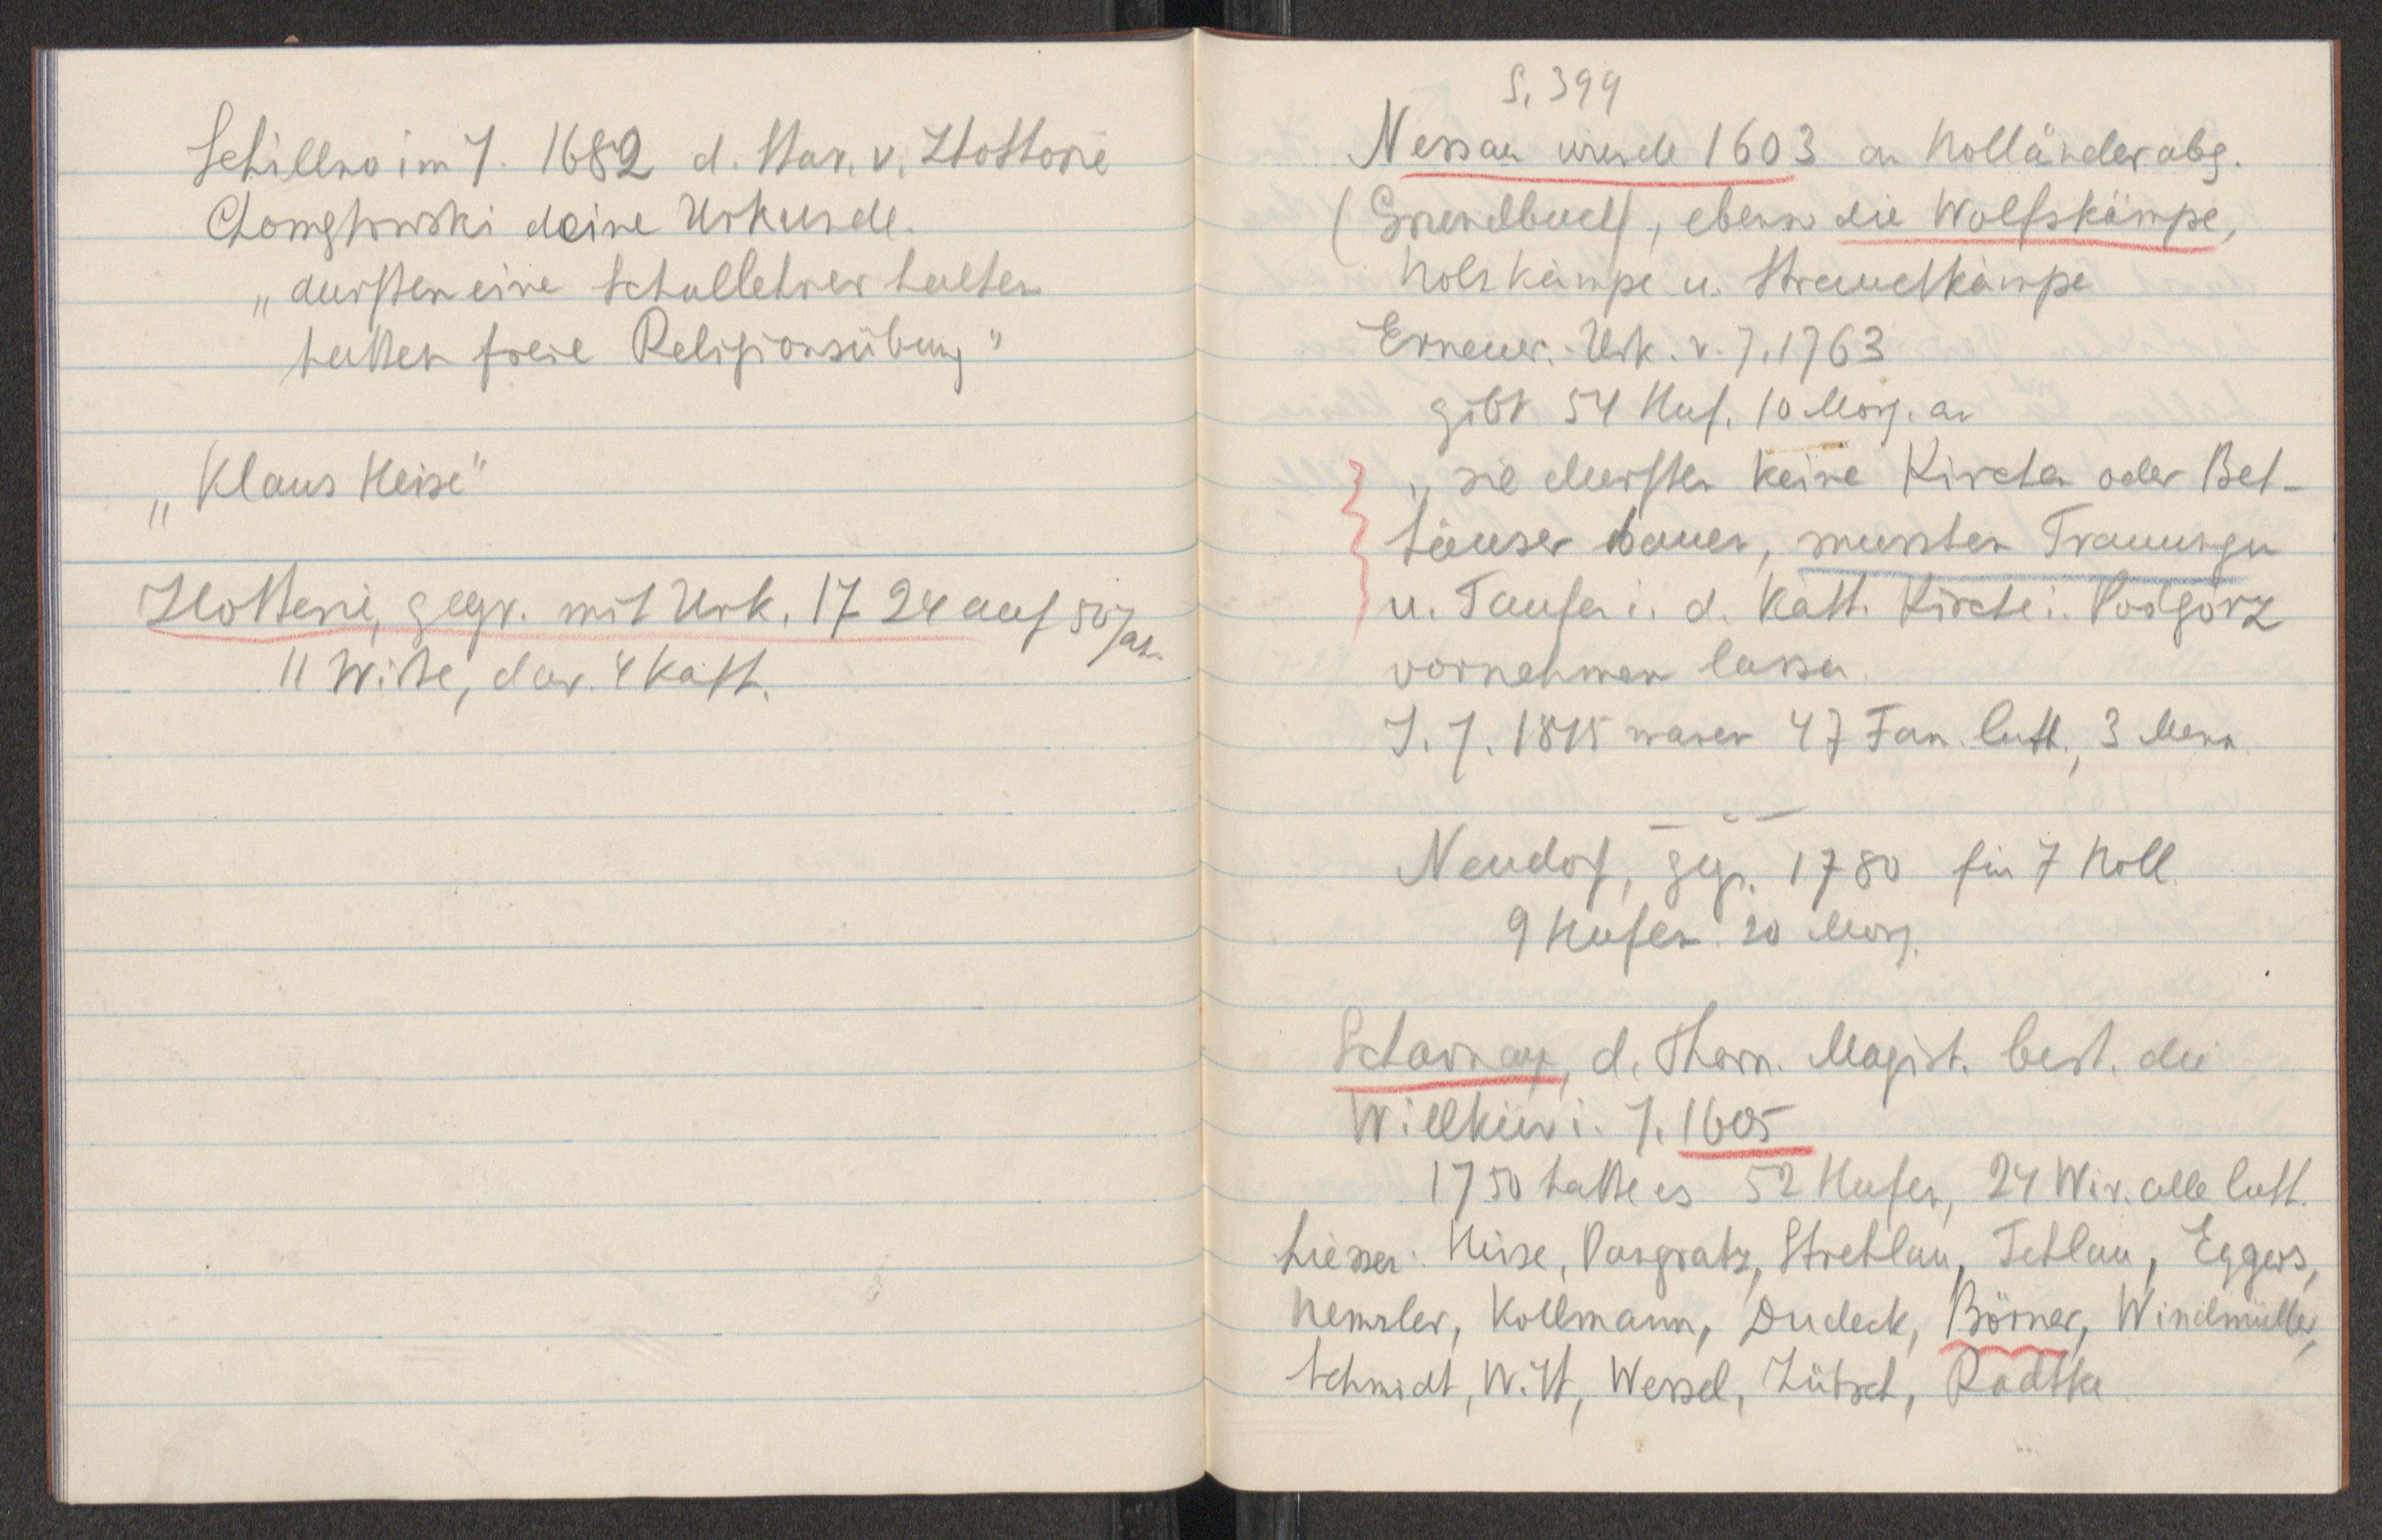 Schillno im J. 1682 d. Star. v. Zlottorie
deine Urkunde.
„durften eine Schullehrer halten
hatten freie Religionsübung"
„Klaus Heise"
Zlotterie, gegr. mit Urk. 1724 auf 50 Jah.
11 Wirte, dar. 4 kath.
S. 399
Nessau wurde 1603 an Holländer abg.
(Grundbuch), ebenso die Wolfskämpe,
Holzkämpe u. Strauchkämpe
Erneuer.-Urk. v. J. 1763
gibt 54 Huf. 10 Morg. an
„sie durften keine Kirchen oder Bet-
häuser bauen, mussten Trauungen
u. Taufen i. d. kath. Kirche i. Podgorz
vornehmen lassen.
I. J. 1815 waren 47 Fam. luth., 3 Menn.
Neudorf, gegr. 1780 für 7 Holl.
9 Hufen 20 Morg.
Scharnau, d. Thorn. Magist. best. die
Willkür i. J. 1605
1750 hatte es 52 Hufen, 24 Wir. alle luth.
hiessen: Heise, Pangratz, Strehlau, Tehlau, Eggers,
Kollmann, Dudeck, Börner, Windmüller,
Schmidt, Witt, Wessel, Zütsch, Radtke